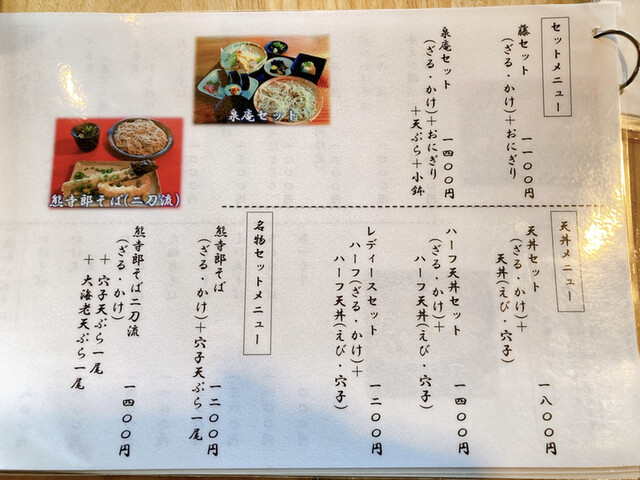 セットメニュー
藤セット 一一〇〇円
(ざる・かけ)+おにぎり
泉庵セット 一四〇〇円
(ざる・かけ)+おにぎり
+天ぷら+小鉢
泉庵セット
熊寺郎そば(二刀流)
天丼メニュー
天丼セット 一八〇〇円
(ざる・かけ)+
天丼(えび・穴子)
ハーフ天丼セット 一四〇〇円
(ざる・かけ)+
ハーフ天丼(えび・穴子)
レディースセット 一二〇〇円
ハーフ(ざる・かけ)+
ハーフ天丼(えび・穴子)
名物セットメニュー
熊寺郎そば 一二〇〇円
(ざる・かけ)+穴子天ぷら一尾
熊寺郎そば二刀流 一四〇〇円
(ざる・かけ)
+穴子天ぷら一尾
+大海老天ぷら一尾